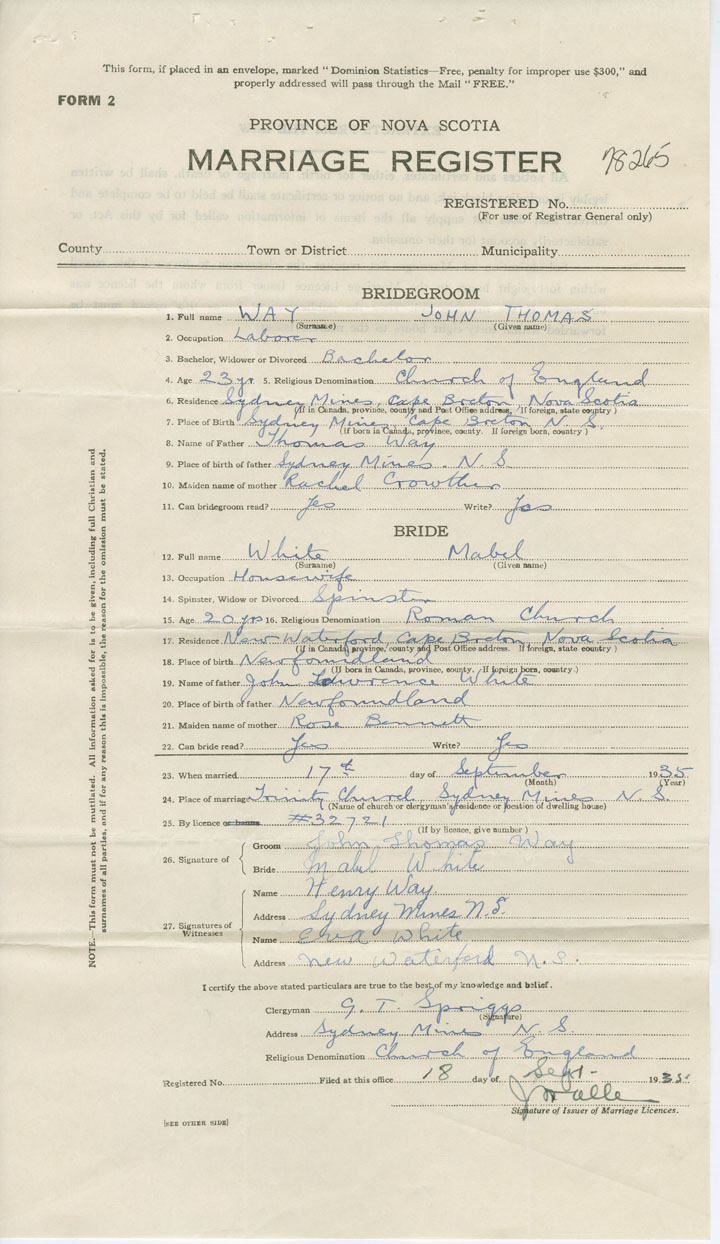 This form, if placed in an envelope, marked "Dominion Statistics—Free, penalty for improper use $300," and
properly addressed will pass through the Mail "FREE."
FORM 2
PROVINCE OF NOVA SCOTIA
MARRIAGE REGISTER 78265
REGISTERED No.
(For use of Registrar General only)
County Town or District Municipality
BRIDEGROOM
1. Full name WAY JOHN THOMAS
(Surname) (Given name)
2. Occupation Laborer
3. Bachelor, Widower or Divorced Bachelor
4. Age 23 yr 5. Religious Denomination Church of England
6. Residence Sydney Mines, Cape Breton, Nova Scotia
(If in Canada, province, county and Post Office address. If foreign, state country)
7. Place of Birth Sydney Mines Cape Breton N. S.
(If born in Canada, province, county. If foreign born, country)
8. Name of Father Thomas Way
9. Place of birth of father Sydney Mines. N. S.
10. Maiden name of mother Rachel Crowther
11. Can bridegroom read? Yes Write? Yes
BRIDE
12. Full name White Mabel
(Surname) (Given name)
13. Occupation Housewife
14. Spinster, Widow or Divorced Spinster
15. Age 20 yrs 16. Religious Denomination Roman Church
17. Residence New Waterford, Cape Breton, Nova Scotia
(If in Canada, province, county and Post Office address. If foreign, state country)
18. Place of birth Newfoundland
(If born in Canada, province, county. If foreign born, country.)
19. Name of father John Lawrence White
20. Place of birth of father Newfoundland
21. Maiden name of mother Rose Bennett
22. Can bride read? Yes Write? Yes
23. When married 17th day of September 1935
(Month) (Year)
24. Place of marriage Trinity Church, Sydney Mines N. S.
(Name of church or clergyman's residence or location of dwelling house)
25. By licence or banns #32721
(If by licence, give number)
26. Signature of Groom John Thomas Way
Bride Mabel White
27. Signatures of Witnesses
Name Henry Way.
Address Sydney Mines N.S.
Name Eva White
Address New Waterford N.S.
I certify the above stated particulars are true to the best of my knowledge and belief.
Clergyman G. T. Spriggs
(Signature)
Address Sydney Mines N. S.
Religious Denomination Church of England
Registered No. Filed at this office 18 day of Sept. 1935
Signature of Issuer of Marriage Licences.
[SEE OTHER SIDE]
NOTE.—This form must not be mutilated. All information asked for is to be given, including full Christian and
surnames of all parties, and if for any reason this is impossible, the reason for the omission must be stated.